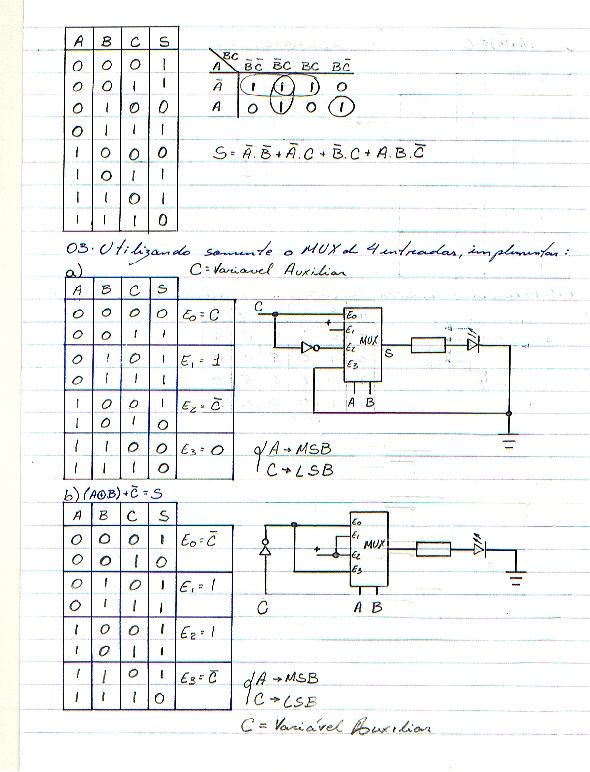 A B C S
0 0 0 1
0 0 1 1
0 1 0 0
0 1 1 1
1 0 0 0
1 0 1 1
1 1 0 1
1 1 1 0
BC
A B̄C̄ B̄C BC BC̄
Ā 1 1 1 0
A 0 1 0 1
S = Ā.B̄ + Ā.C + B̄.C + A.B.C̄
03. Utilizando somente o MUX de 4 entradas, implementar:
a) C = Variavel Auxiliar
A B C S
0 0 0 0 E0 = C
0 0 1 1
0 1 0 1 E1 = 1
0 1 1 1
1 0 0 1 E2 = C̄
1 0 1 0
1 1 0 0 E3 = 0
1 1 1 0
C
+
E0
E1
E2
E3
MUX
S
A B
A → MSB
C → LSB
b) (A⊕B) + C̄ = S
A B C S
0 0 0 1 E0 = C̄
0 0 1 0
0 1 0 1 E1 = 1
0 1 1 1
1 0 0 1 E2 = 1
1 0 1 1
1 1 0 1 E3 = C̄
1 1 1 0
+
E0
E1
E2
E3
MUX
C
A B
A → MSB
C → LSB
C = Variável Auxiliar